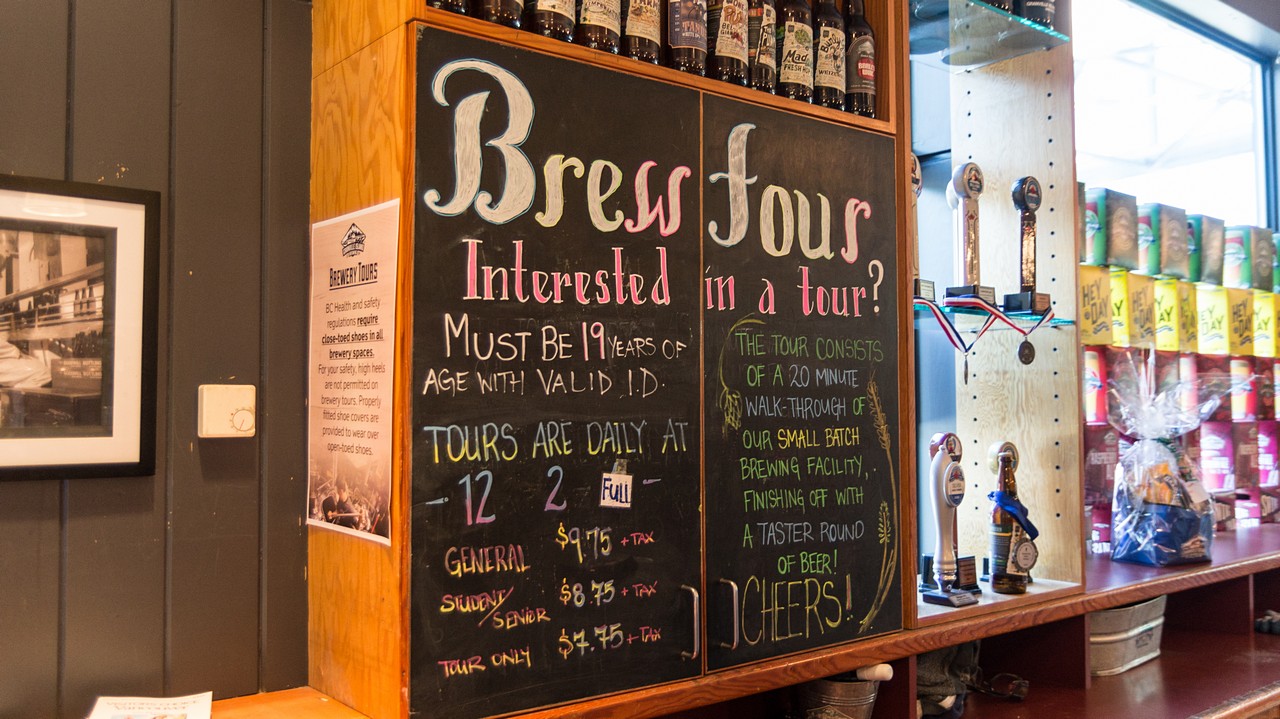 Brew Tour
Interested in a tour?
MUST BE 19 YEARS OF
AGE WITH VALID I.D.
TOURS ARE DAILY AT
- 12 2 FULL -
GENERAL $9.75 + TAX
STUDENT/SENIOR $8.75 + TAX
TOUR ONLY $7.75 + TAX
THE TOUR CONSISTS
OF A 20 MINUTE
WALK-THROUGH OF
OUR SMALL BATCH
BREWING FACILITY,
FINISHING OFF WITH
A TASTER ROUND
OF BEER!
CHEERS!
BREWERY TOURS
BC Health and safety
regulations require
close-toed shoes in all
brewery spaces.
For your safety, high heels
are not permitted on
brewery tours. Properly
fitted shoe covers are
provided to wear over
open-toed shoes.
Mad
FRESH
HEY DAY
HEY DAY